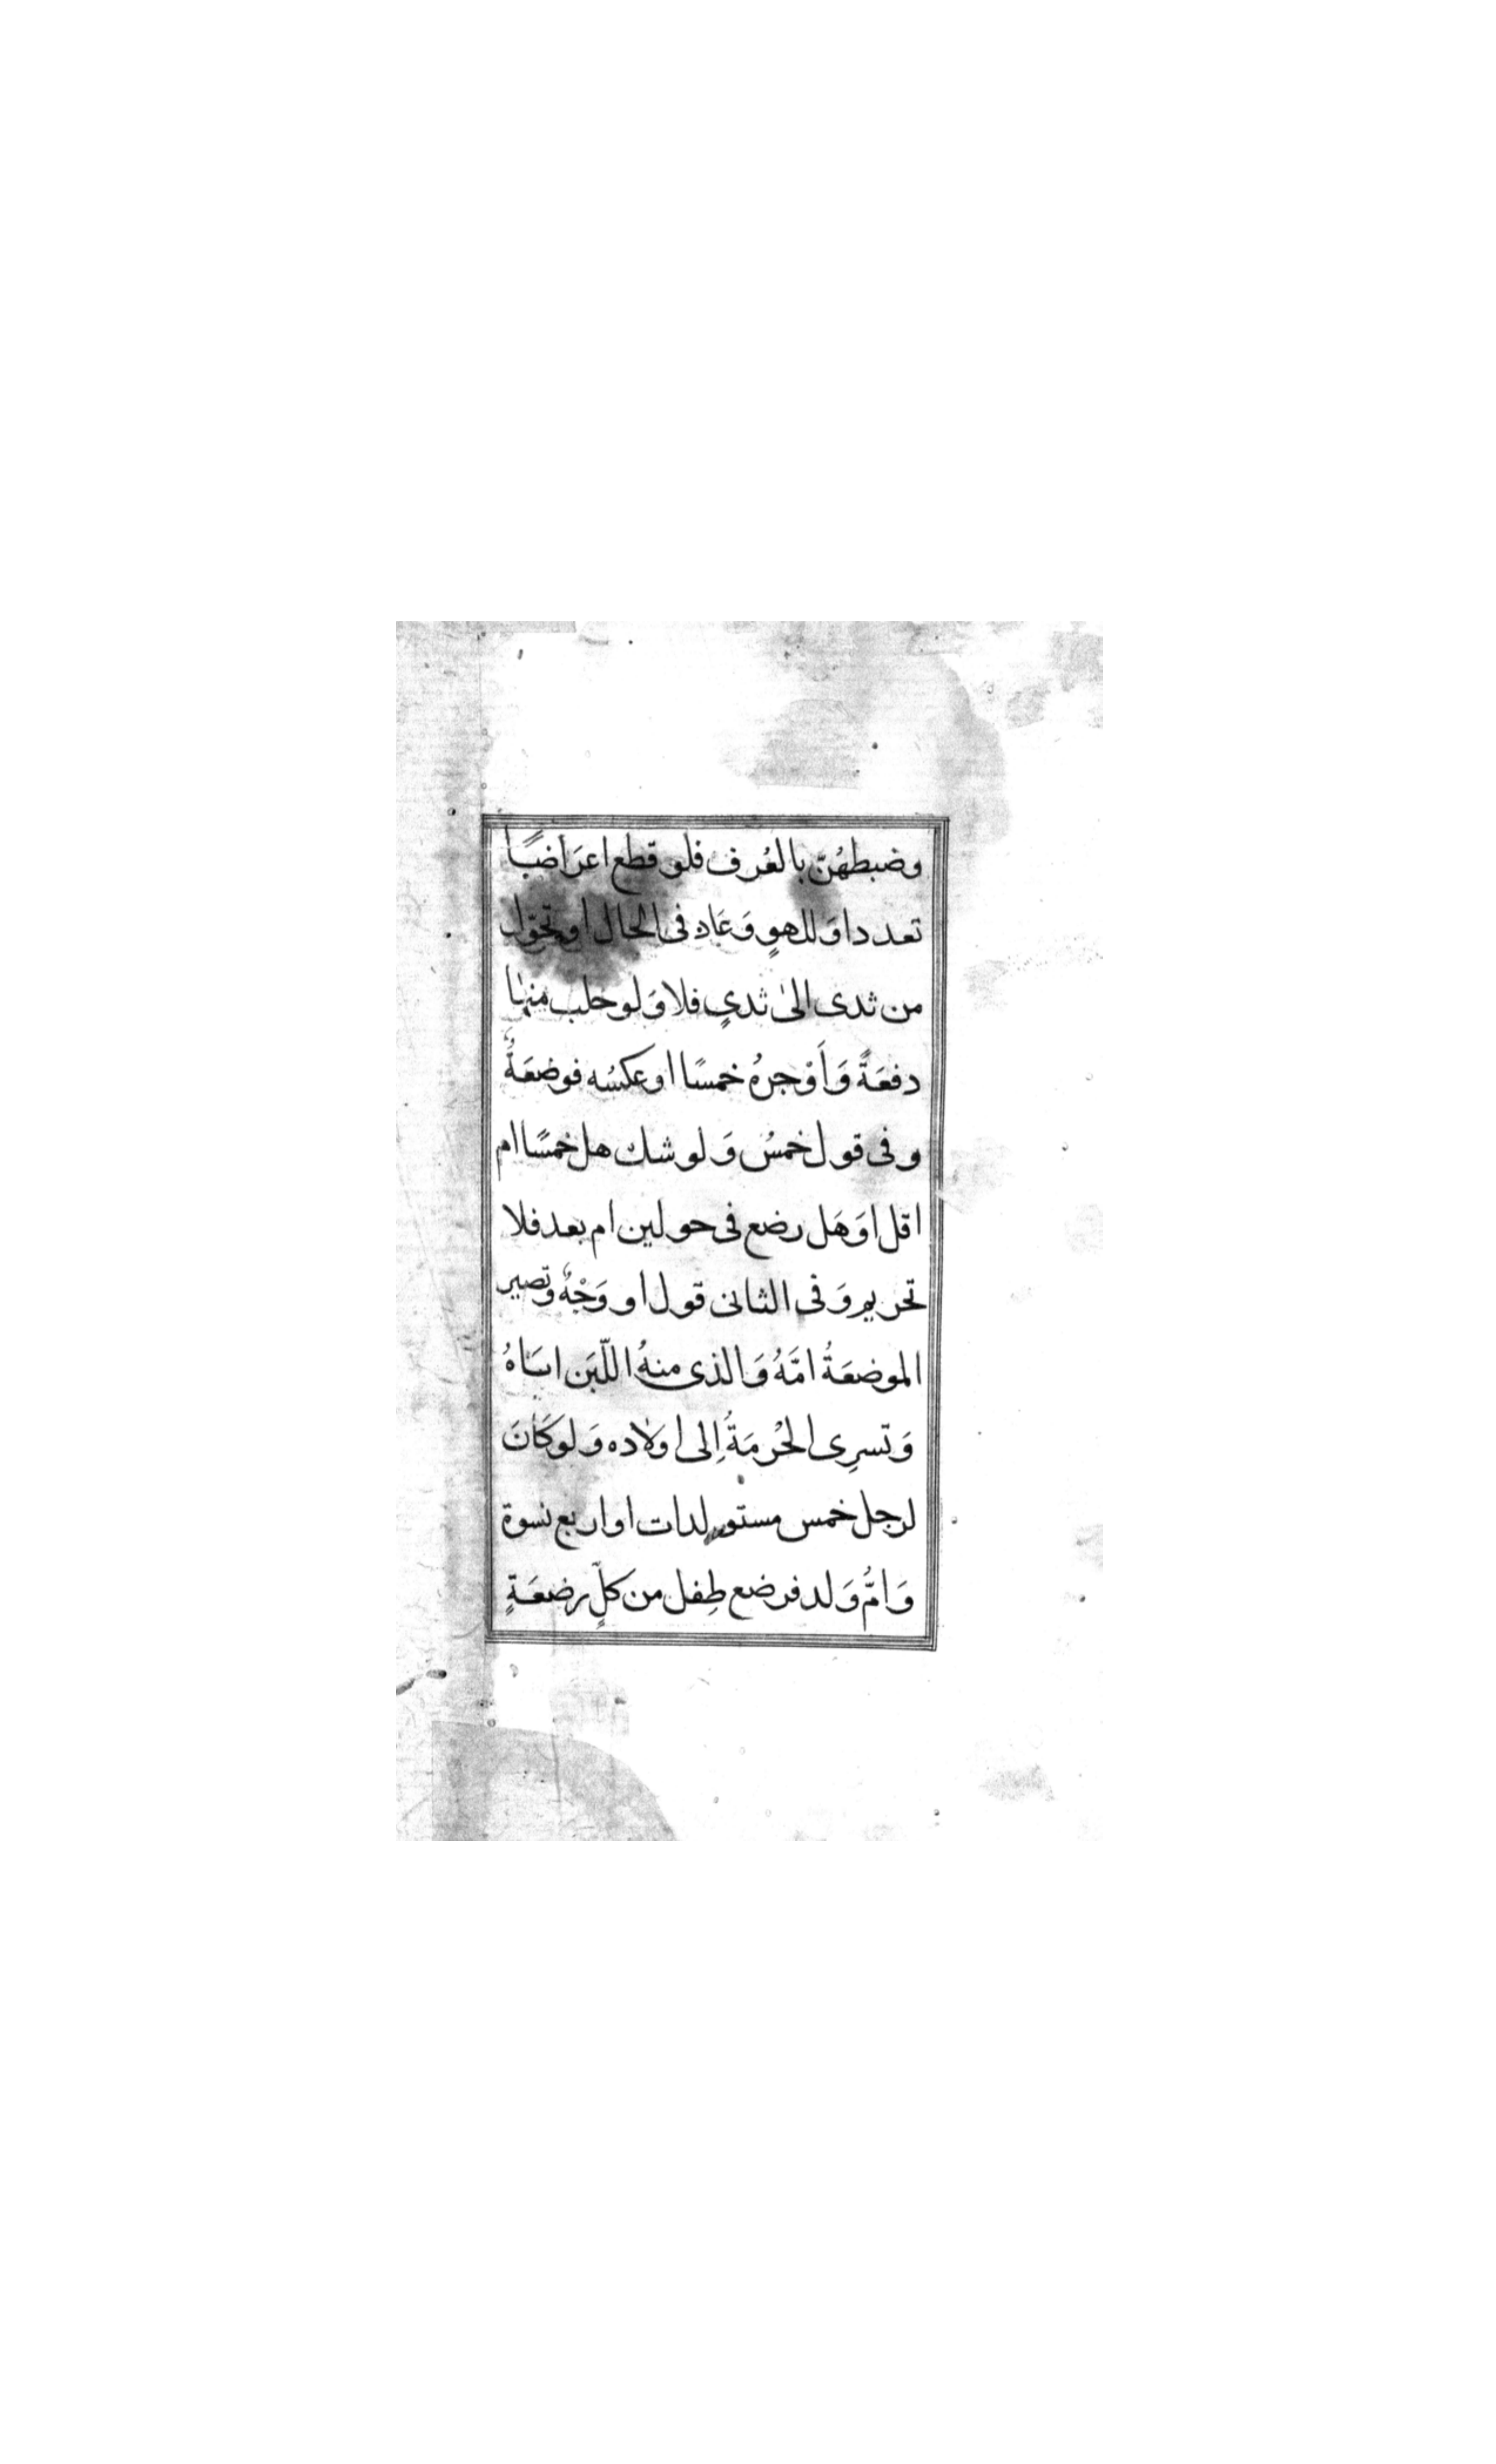 وضبطهُنّ بالعُرف فلو قطع اعرَاضًا
تعددا وَللهوٍ وَعَاد فى الحال او تحّول
من ثدى الىٰ ثدىٍ فلا وَلو حلب منها
دفعَةً وَأَوْجرهُ خمسًا او عكسُه فرضعَةٌ
وفى قول خمسُ وَلو شك هل خمسًا ام
اقل اوَهَل رضع فى حولين ام بعد فلا
تحريم وَفى الثانى قول او وَجْهٌ وتصير
المرضعَةُ امَّهُ وَالذى منهُ اللّبَن ابَاهُ
وَتسرِى الحُرمَةُ اِلى اولاده وَلو كَانَ
لرجل خمس مستولدات او اربع نسوة
وَامُّ وَلد فرضع طِفل من كلٍّ رضعَةٍ